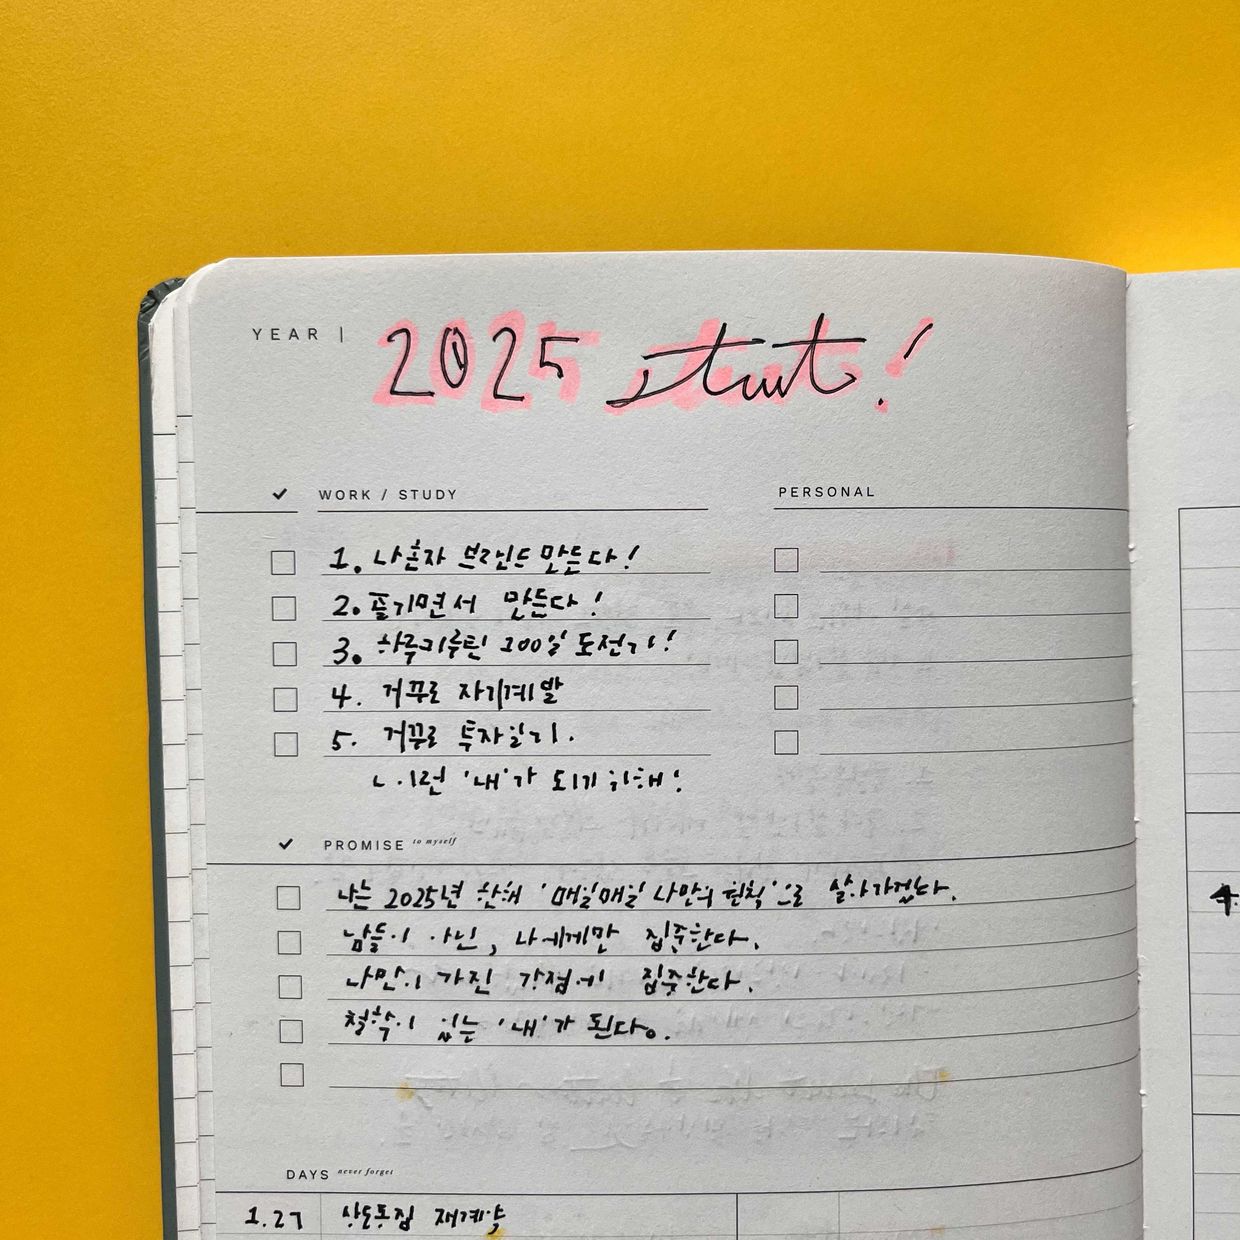 YEAR | 2025 start!
✓ WORK / STUDY
PERSONAL
1. 나혼자 브랜드 만든다!
2. 즐기면서 만든다!
3. 하루키루틴 200일 도전기!
4. 거꾸로 자기계발
5. 거꾸로 투자일기.
ㄴ 이런 '내'가 되기 위해!
✓ PROMISE to myself
나는 2025년 한해 '매일매일 나만의 원칙'으로 살아가겠다.
남들이 아닌, 나에게만 집중한다.
나만이 가진 강점에 집중한다.
철학이 있는 '내'가 된다.
DAYS never forget
1.27 상도동집 재계약
4.